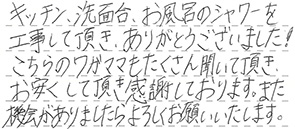 キッチン、洗面台、お風呂のシャワーを
工事して頂き、ありがとうございました!
こちらのワガママもたくさん聞いて頂き、
お安くして頂き感謝しております。また
機会がありましたらよろしくお願いいたします。